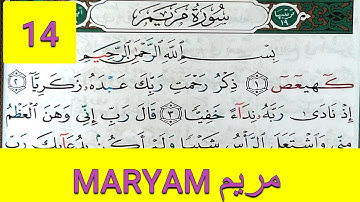 14
سُورَةُ مَرْيَمَ
ترتيبها ١٩
بِسْمِ اللَّهِ الرَّحْمَٰنِ الرَّحِيمِ
كٓهيعٓصٓ ١ ذِكْرُ رَحْمَتِ رَبِّكَ عَبْدَهُۥ زَكَرِيَّآ ٢
إِذْ نَادَىٰ رَبَّهُۥ نِدَآءً خَفِيًّا ٣ قَالَ رَبِّ إِنِّي وَهَنَ الْعَظْمُ
مِنِّي وَاشْتَعَلَ الرَّأْسُ شَيْبًا وَلَمْ أَكُنۢ بِدُعَآئِكَ رَبِّ
MARYAM مريم